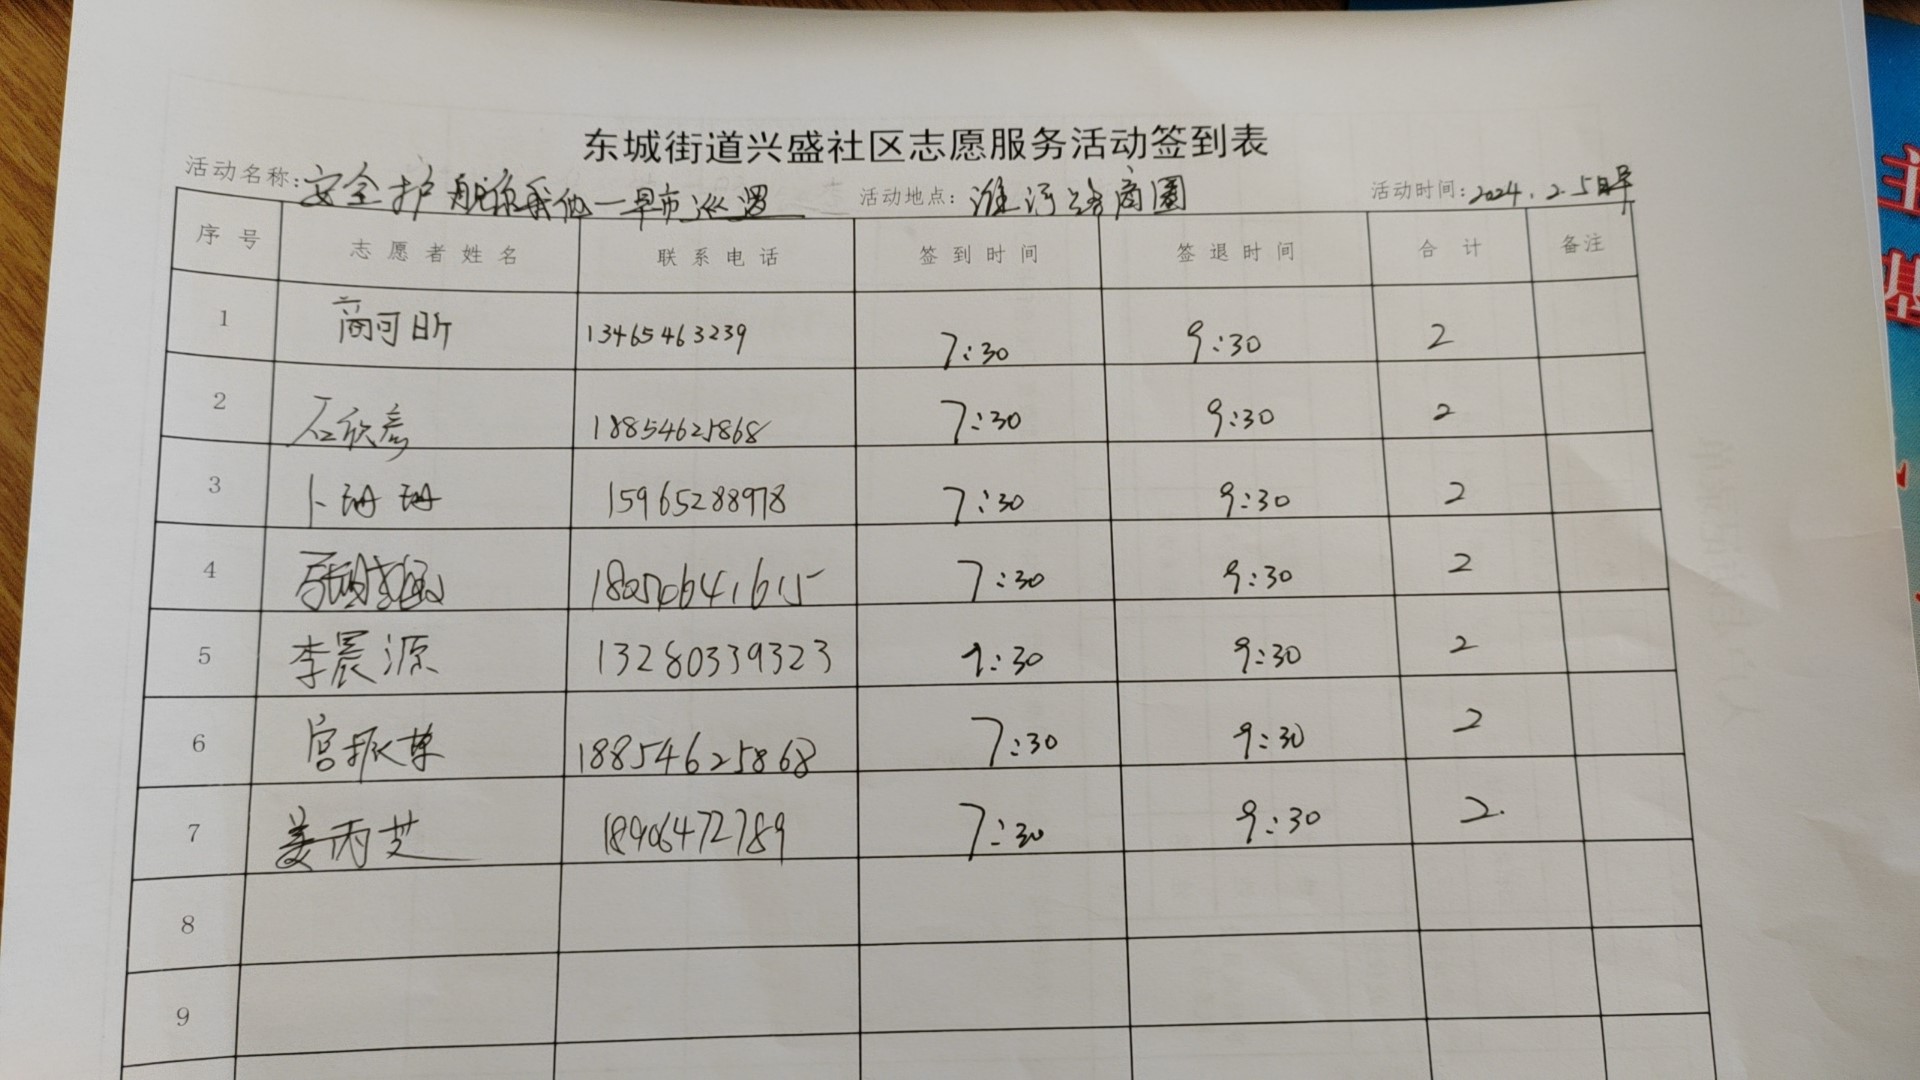 东城街道兴盛社区志愿服务活动签到表
活动名称:安全护航你我他一早市巡逻 活动地点:淮河路商圈 活动时间:2024.2.5日早
序号 志愿者姓名 联系电话 签到时间 签退时间 合计 备注
1 商可昕 13465463239 7:30 9:30 2
2 石欣彦 18854625868 7:30 9:30 2
3 卜珊珊 15965288978 7:30 9:30 2
4 7:30 9:30 2
5 李晨源 13280339323 9:30 2
6 宫振华 18854625868 7:30 9:30 2
7 姜丙芝 18906472789 7:30 9:30 2.
8
9
主
基